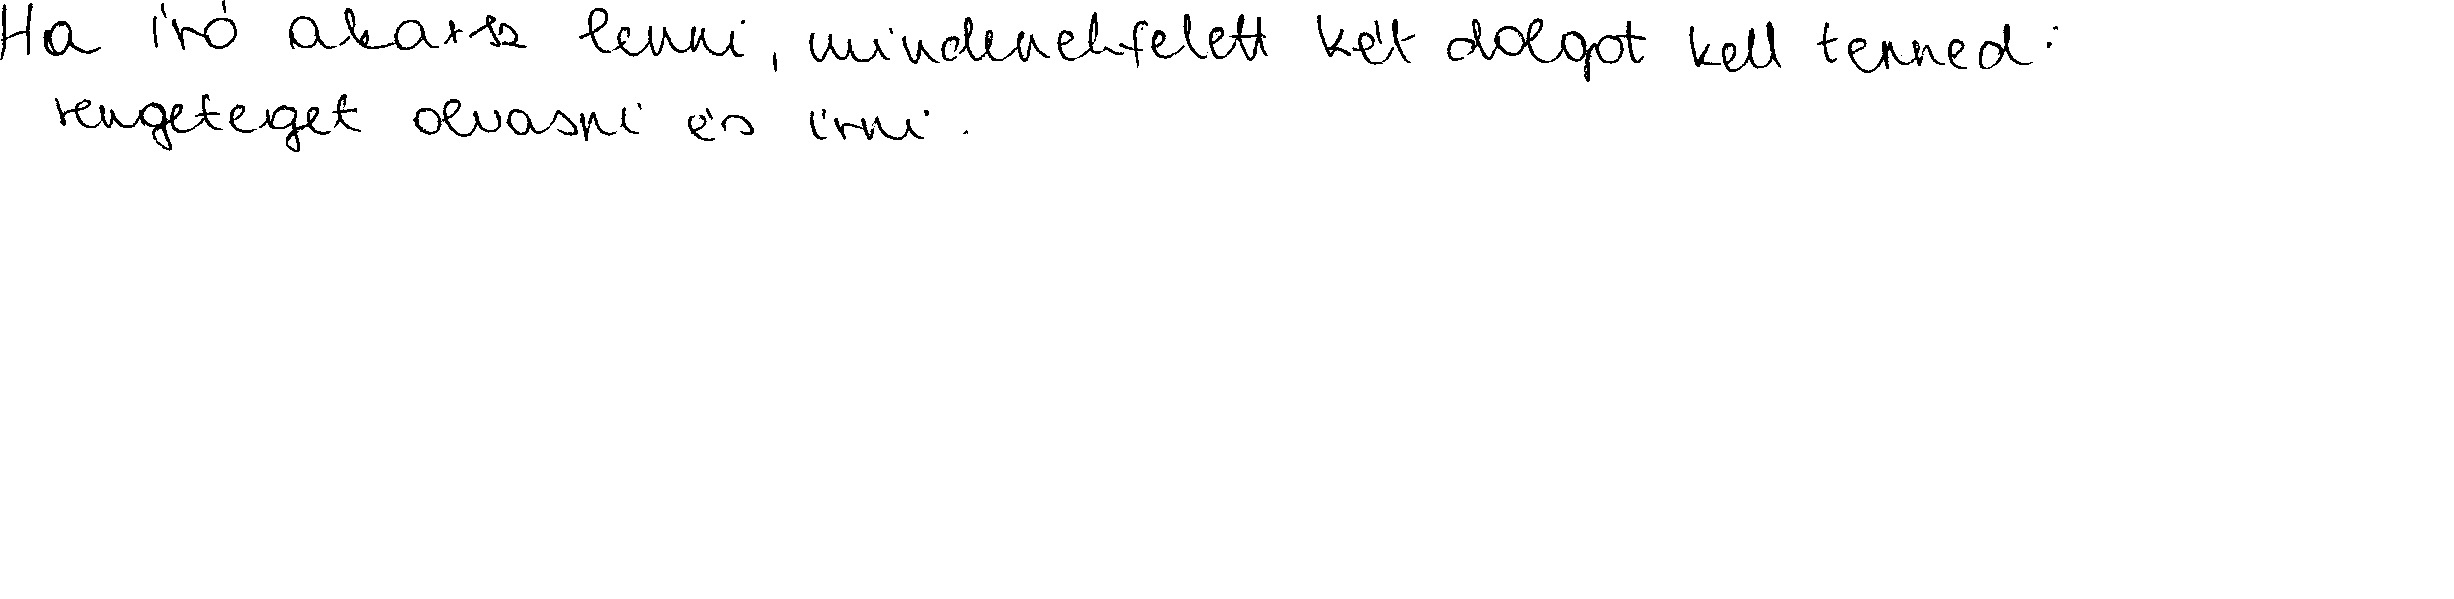 Ha író akarsz lenni, mindenekfelett két dolgot kell tenned:
rengeteget olvasni és írni.